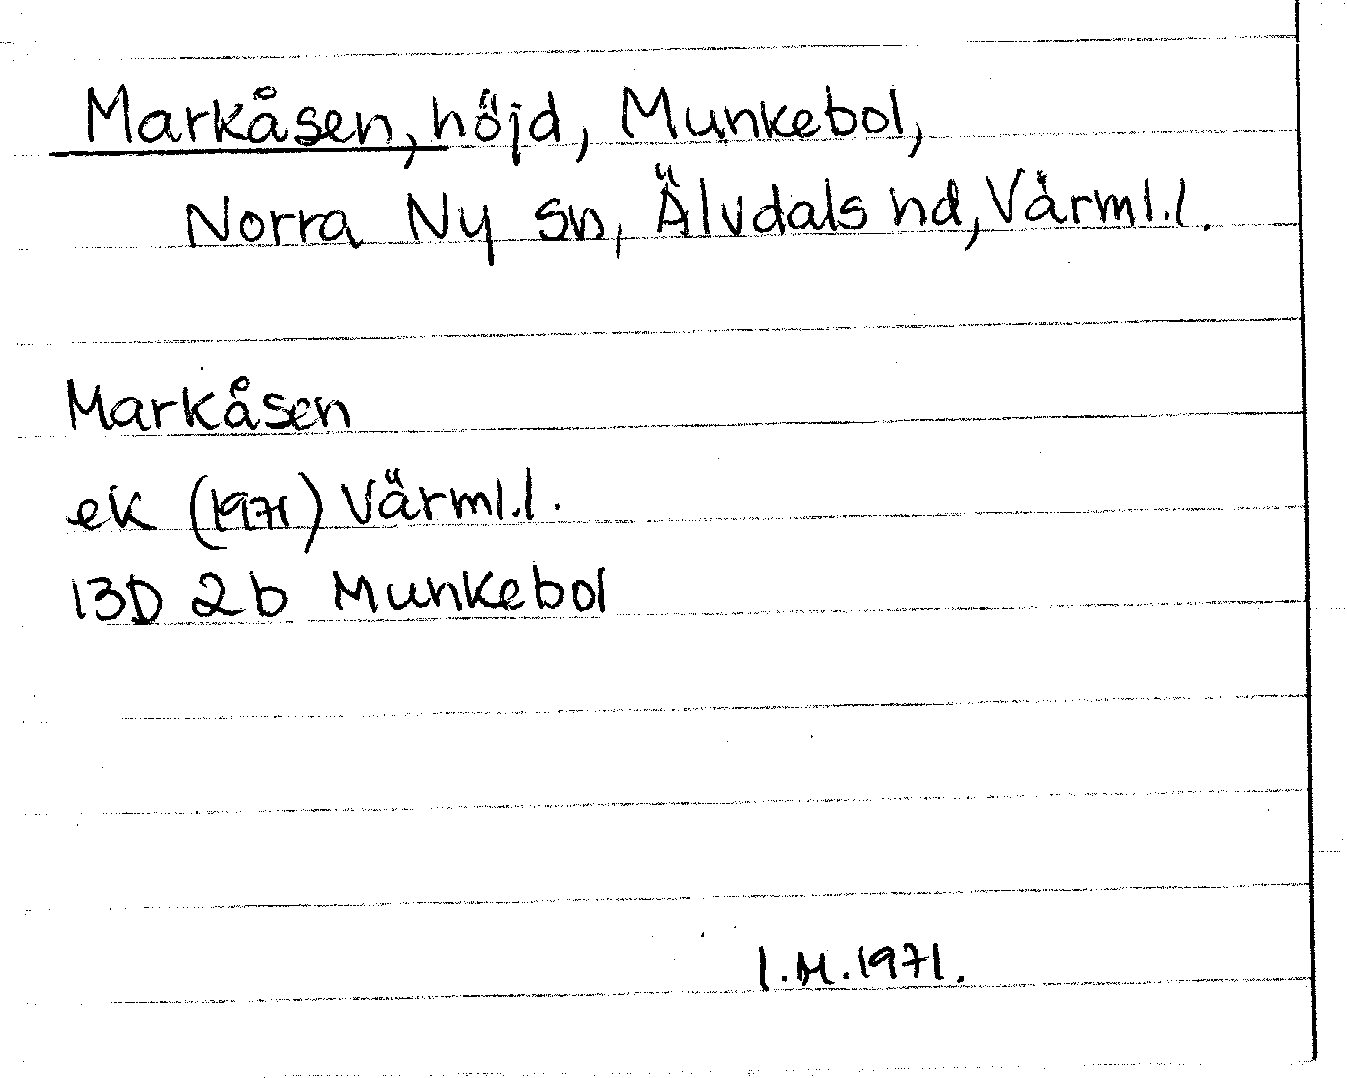 Markåsen, höjd, Munkebol,
Norra Ny sn, Älvdals hd, Värml.l.
Markåsen
ek (1971) Värml.l.
13D 2b Munkebol
I.M.1971.